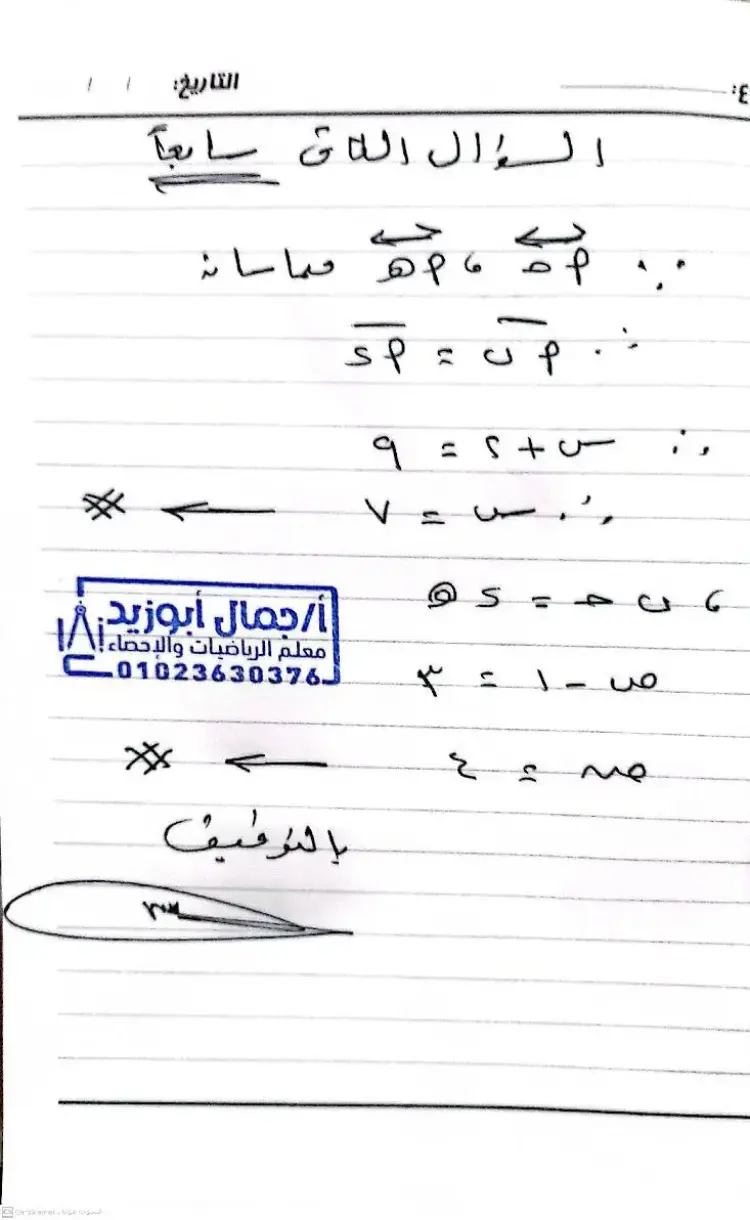 التاريخ: / /
السؤال الثانى سابعاً
∵ أحـ ، أهـ مماسان
∴ أب = أد
∴ س + ٢ = ٩
∴ س = ٧ ←
، ب حـ = د هـ
ص - ١ = ٣
ص = ٤ ←
أ/جمال أبوزيد
معلم الرياضيات والإحصاء
01023630376
بالتوفيق